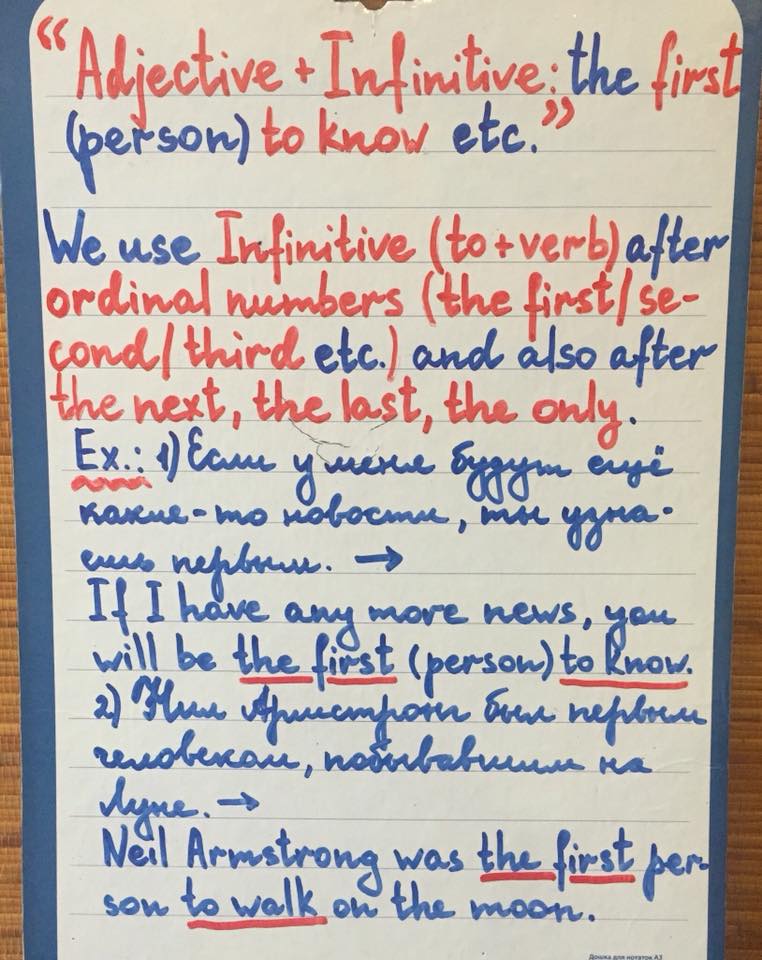 “Adjective + Infinitive: the first
(person) to know etc.”
We use Infinitive (to + verb) after
ordinal numbers (the first/se-
cond/third etc.) and also after
the next, the last, the only.
Ex.: 1) Если у меня будут ещё
какие-то новости, ты узна-
ешь первым. →
If I have any more news, you
will be the first (person) to know.
2) Нил Армстронг был первым
человеком, побывавшим на
Луне. →
Neil Armstrong was the first per-
son to walk on the moon.
Дошка для нотаток А3